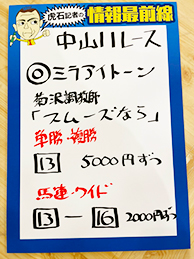 虎石記者の
情報最前線
中山11レース
◎ミラアイトーン
菊沢調教師
「スムーズなら」
単勝・複勝
13 5000円ずつ
馬連・ワイド
13 — 16 2000円ずつ